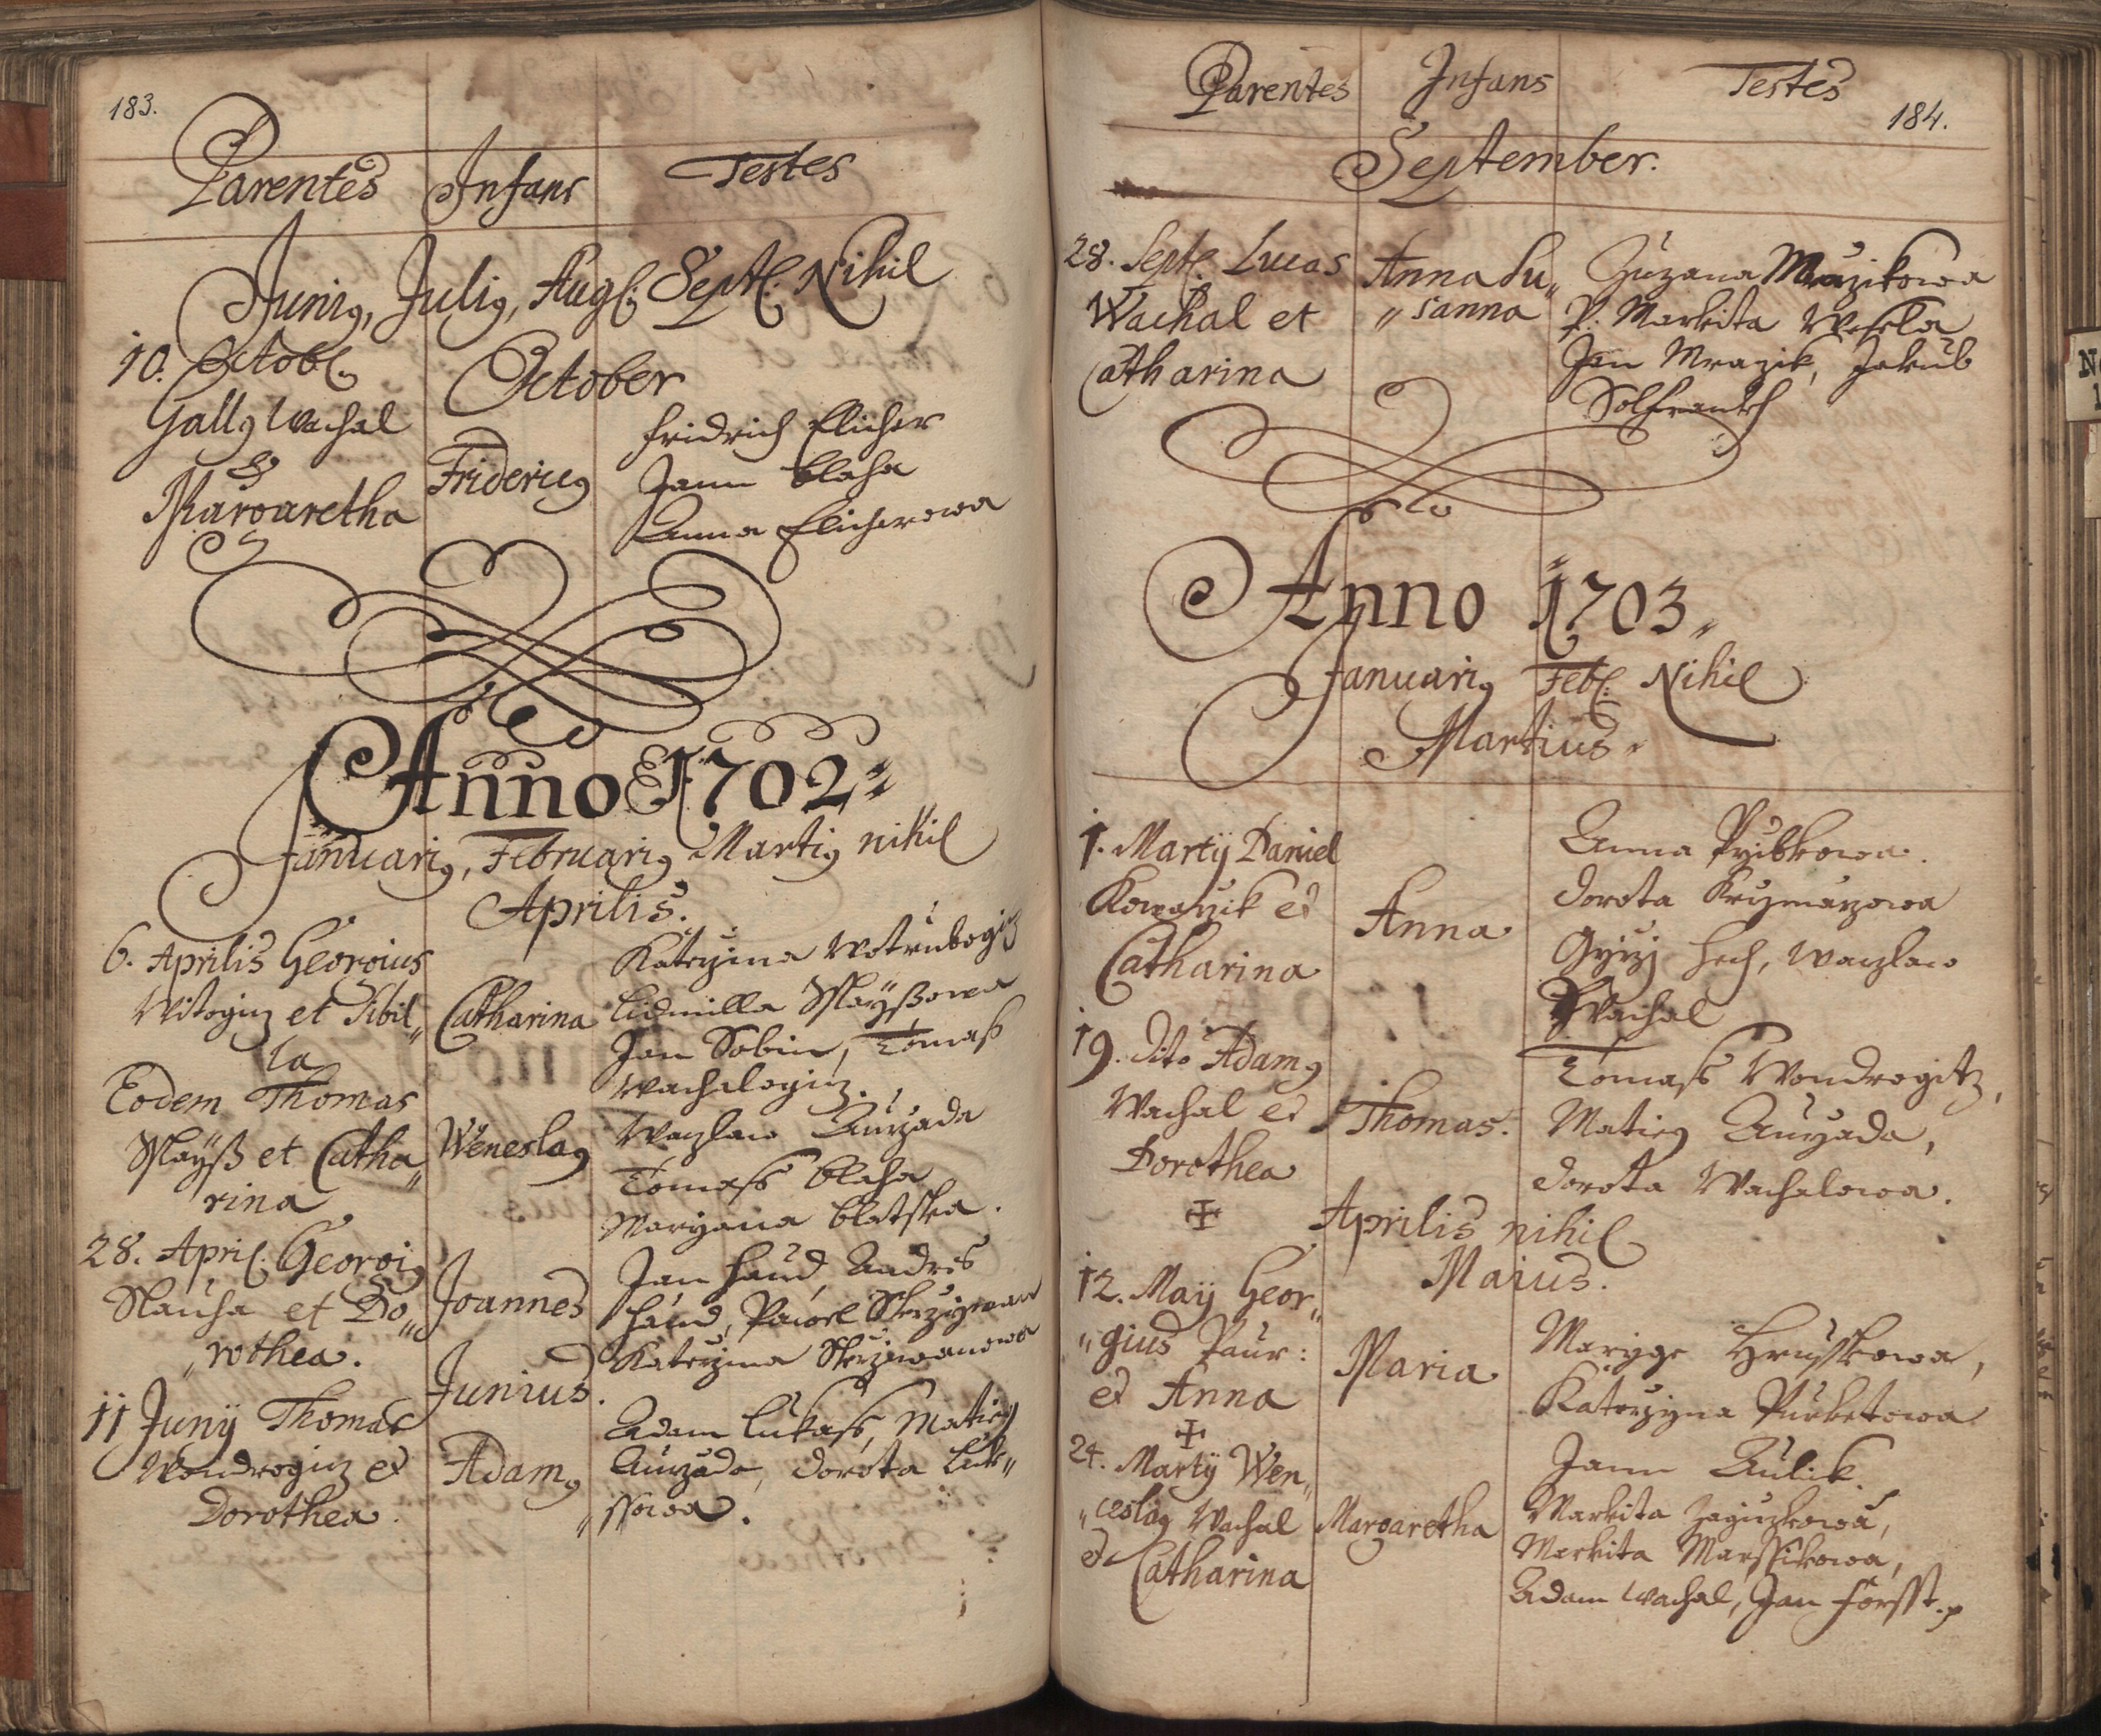 183.
Parentes Infans Testes
Junig, Julig, Aug: Sept: Nihil
10. Octob:
October
Gallg Wachal
et
Margaretha
Fridericg
Fridrich Elicher
Jann Blaha
Anna Elicherowa
Anno 1702
Januarig, Februarig Martig nihil
Aprilis.
6. Aprilis Georgius
Witogin et Sibil„
la
Catharina
Kateržina Wotrubogin
Lidmilla Mayßowa
Jan Sobin, Tomaß
Wachalogin.
Eodem Thomas
Mayß et Catha„
rina
Weneslag
Wazlaw Auržada
Tomaß Blaha
Maryana Blatska.
28. April. Georgig
Slauha et Do„
„rothea.
Joannes
Jan Haud, Andres
Haud, Pawel
Kateržina
Junius.
11 Junÿ Thomas
Wondrogin et
Dorothea.
Adamg
Adam Lukaß, Matieg
Auržada, Dorota Luk„
„ssowa.
Parentes Infans Testes
184.
September.
28. Sept. Lucas
Wachal et
Catharina
Anna Su„
„sanna
Zuzana Mrazikowa
P. Markita Wesela
Jan Mrazik, Jakub
Solfrankh
Anno 1703„
Januarig Feb: Nihil
Martius.
1. Martÿ Daniel
Kowarzik et
Catharina
Anna
Anna Pribkowa.
Dorota
Gyrzy Hech, Wazlaw
Wachal
19. Dito Adamg
Wachal et
Dorothea
Thomas.
Tomaß Wondrogitz,
Matieg Auržada,
Dorota Wachalowa.
Aprilis nihil
Maius.
12. Maÿ Geor„
„gius Paur:
et Anna
Maria
Maryge Hrusskowa,
Kateržyna Purketowa
Jann Kulik.
24. Martÿ Wen„
„ceslag Wachal
et Catharina
Margaretha
Markita
Markita Marssikowa,
Adam Wachal, Jan Forsst.